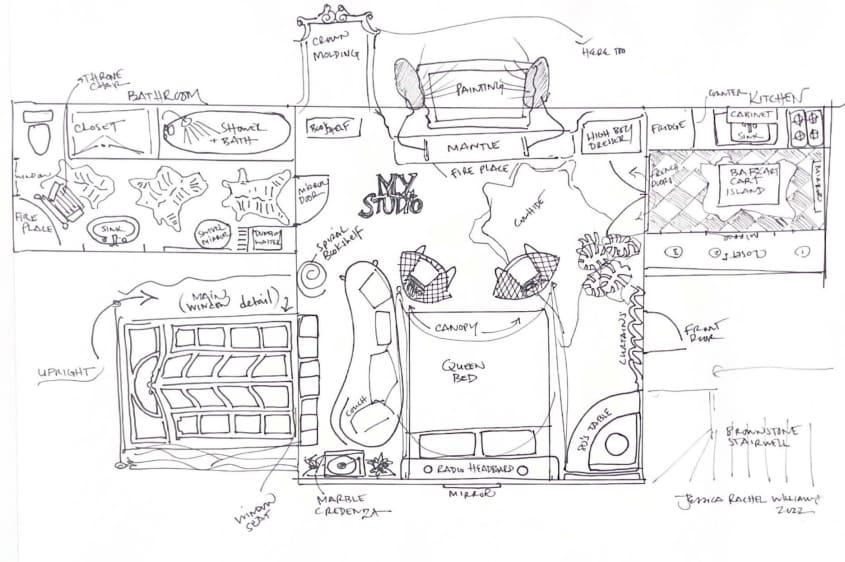 CROWN
MOLDING
HERE TOO
THRONE
CHAIR
BATHROOM
CLOSET
SHOWER
+ BATH
BOOKSHELF
PAINTING
MANTLE
FIRE PLACE
HIGH BOY
DRESSER
FRIDGE
COUNTER
KITCHEN
CABINET
SINK
WINDOW
FIRE
PLACE
SINK
SWIVEL
MIRROR
MIRROR
DOOR
MY
STUDIO
COWHIDE
FRENCH
DOORS
BAR CART
ISLAND
MIRROR
MIRROR
CLOSET
SPIRAL
BOOKSHELF
MAIN
(WINDOW detail)
UPRIGHT
CANOPY
COUCH
QUEEN
BED
CURTAINS
FRONT
DOOR
80'S TABLE
BROWNSTONE
STAIRWELL
RADIO HEADBOARD
MIRROR
WINDOW
SEAT
MARBLE
CREDENZA
JESSICA RACHEL WILLIAMS
2022